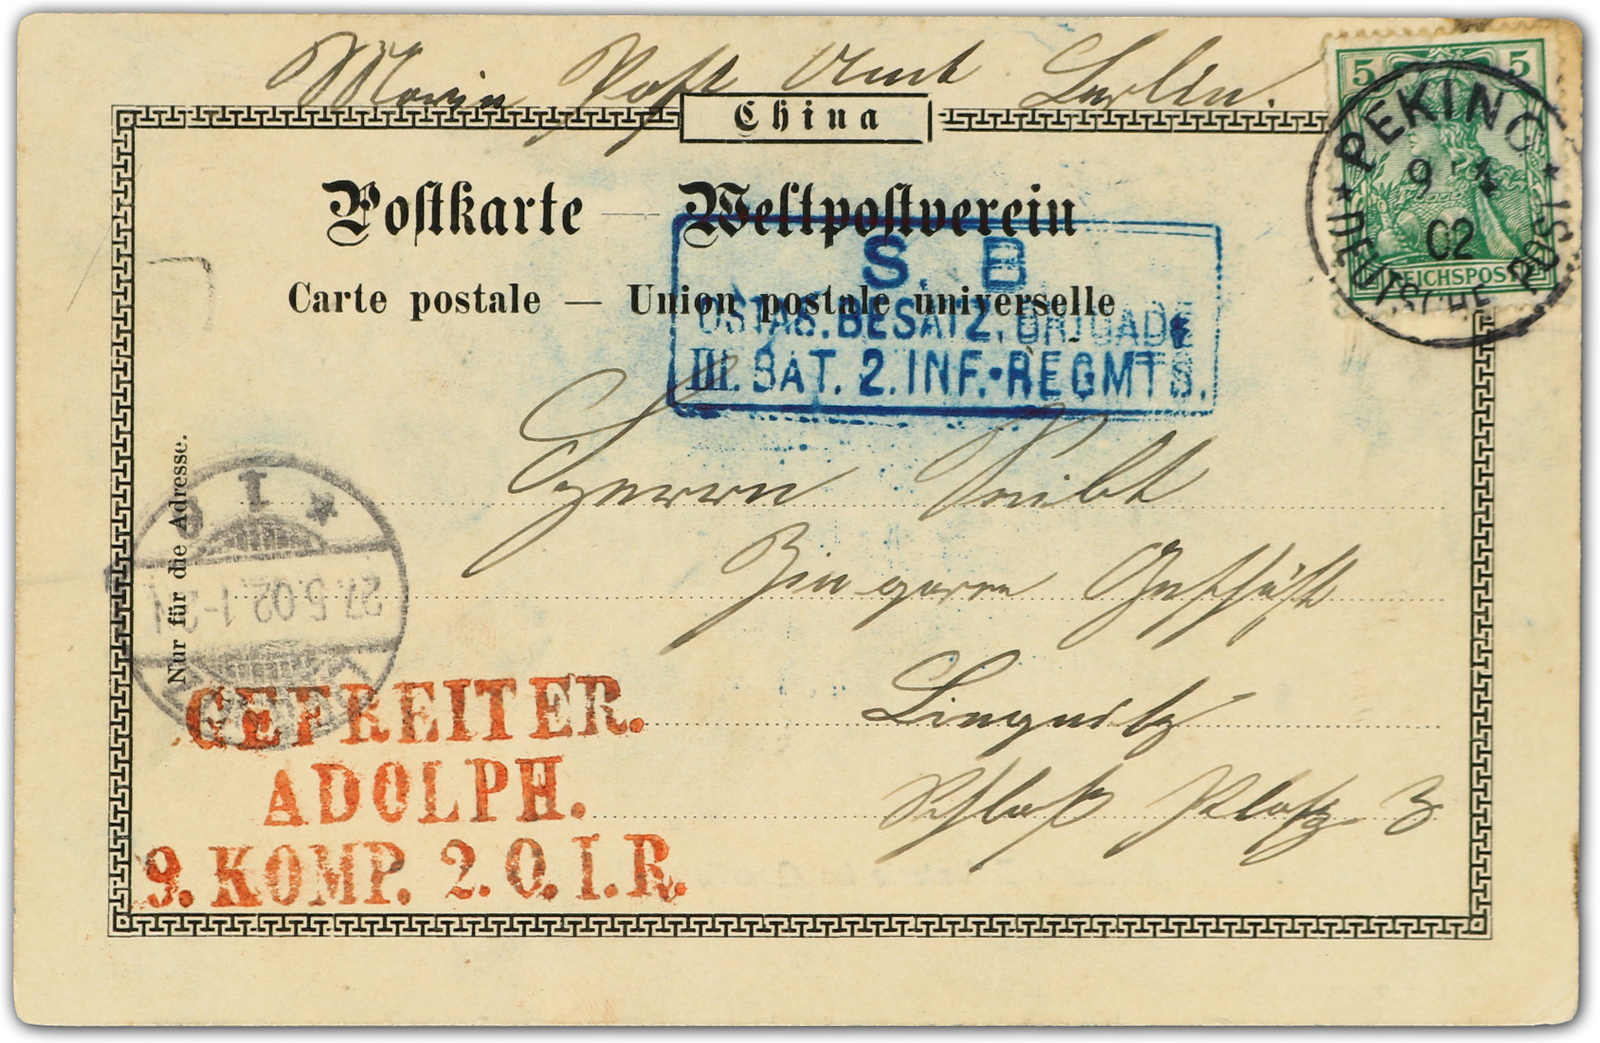 Marin Post Amt Berlin.
China
5 5
PEKING
9 4
02
DEUTSCHE POST
REICHSPOST
Postkarte — Weltpostverein
Carte postale — Union postale universelle
S. B
OSTAS. BESATZ. BRIGADE
III. BAT. 2. INF.-REGMTS.
Herrn Seibt
Zigarrn Geschäft
Liegnitz
Schloß Platz 3
Nur für die Adresse.
27.5.02.1-2N
GEFREITER.
ADOLPH.
9. KOMP. 2. O. I. R.